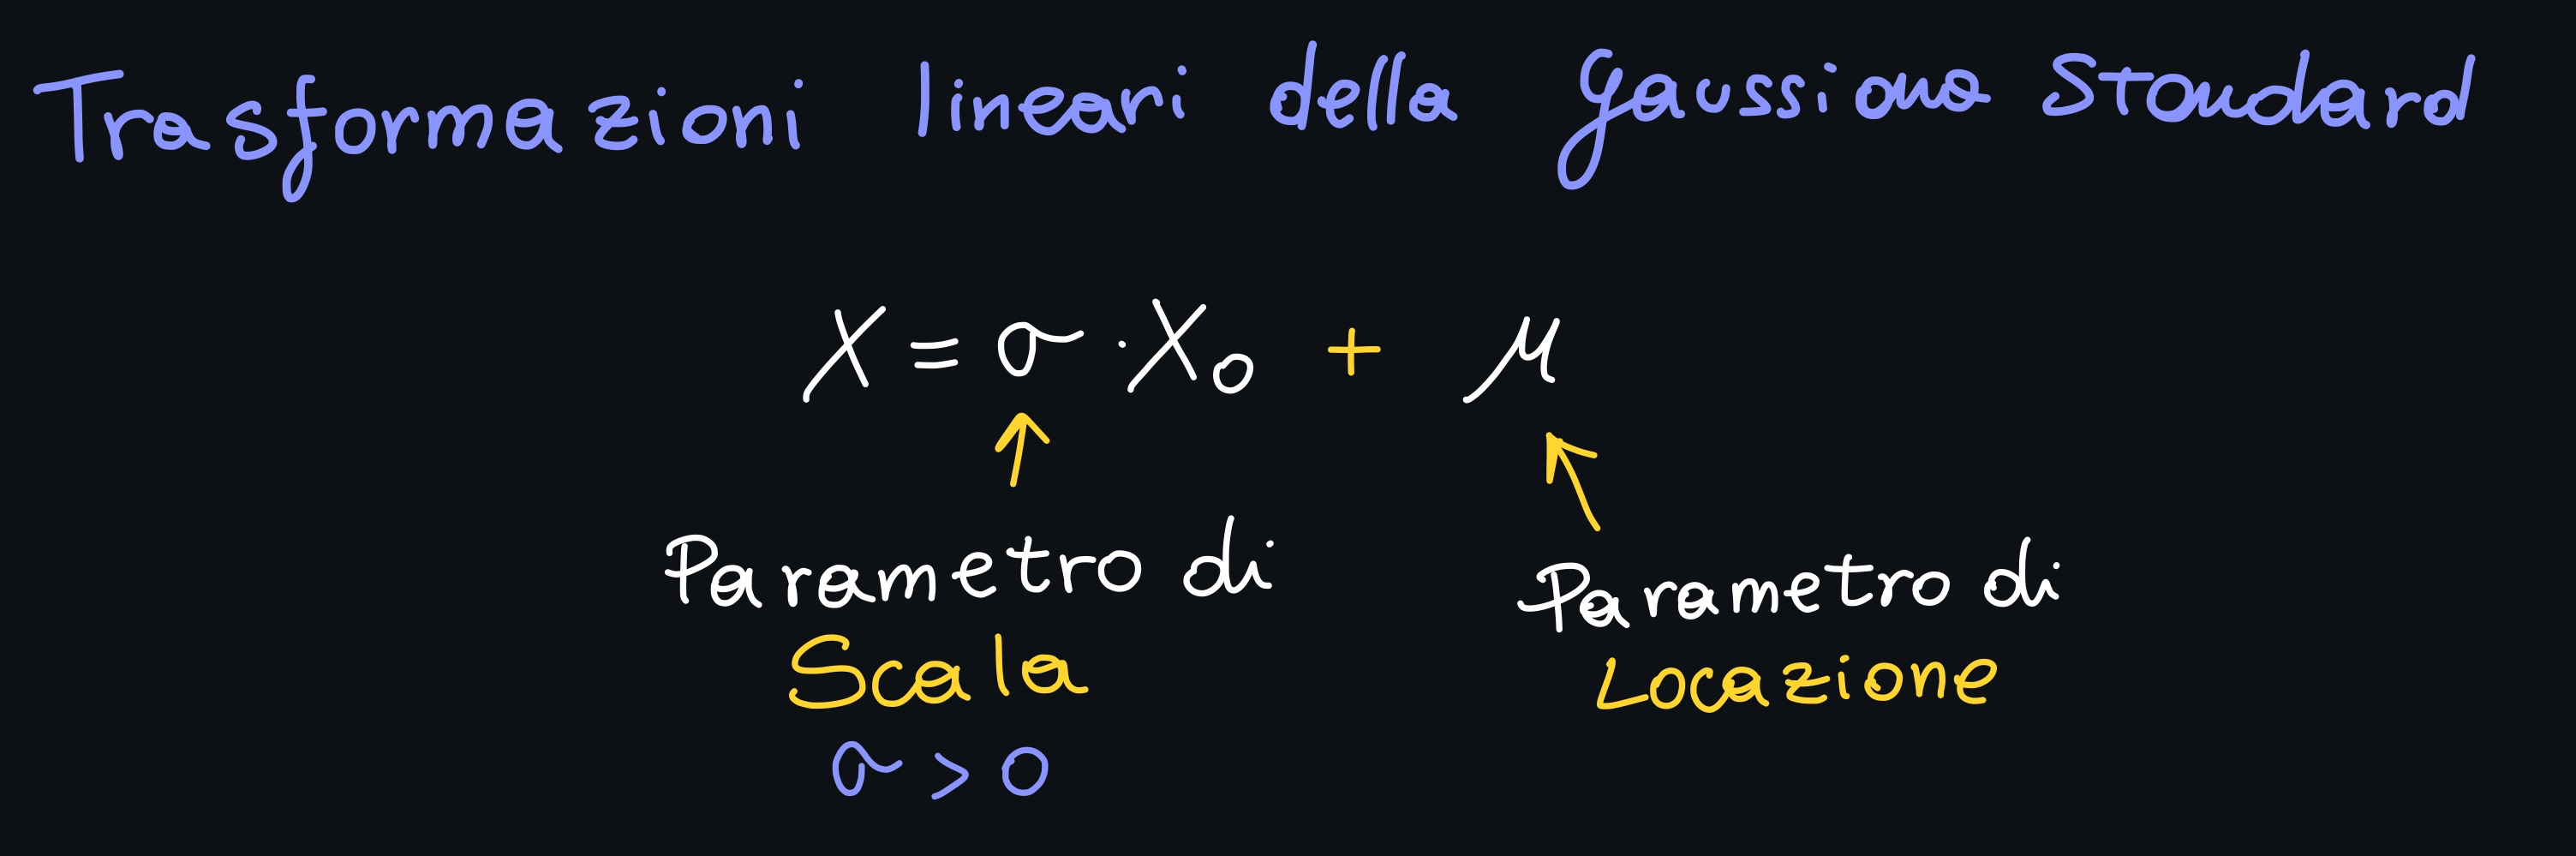 Trasformazioni lineari della gaussiana Standard
X = σ · X₀ + μ
Parametro di
Scala
σ > 0
Parametro di
Locazione